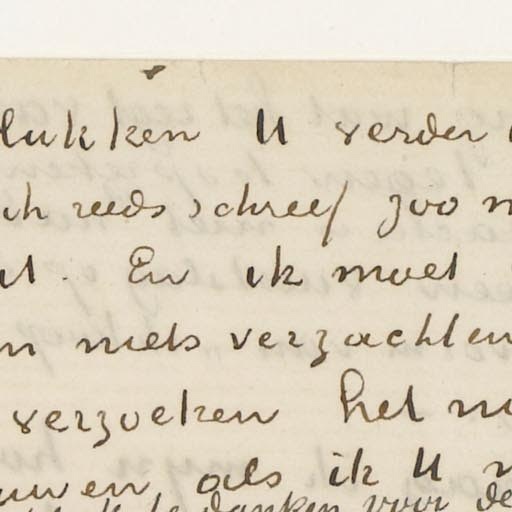 lukken U verder
ik reeds schreef zoo
t. En ik moet
n niets verzachten
verzoeken het
uwen als ik U
te danken voor de